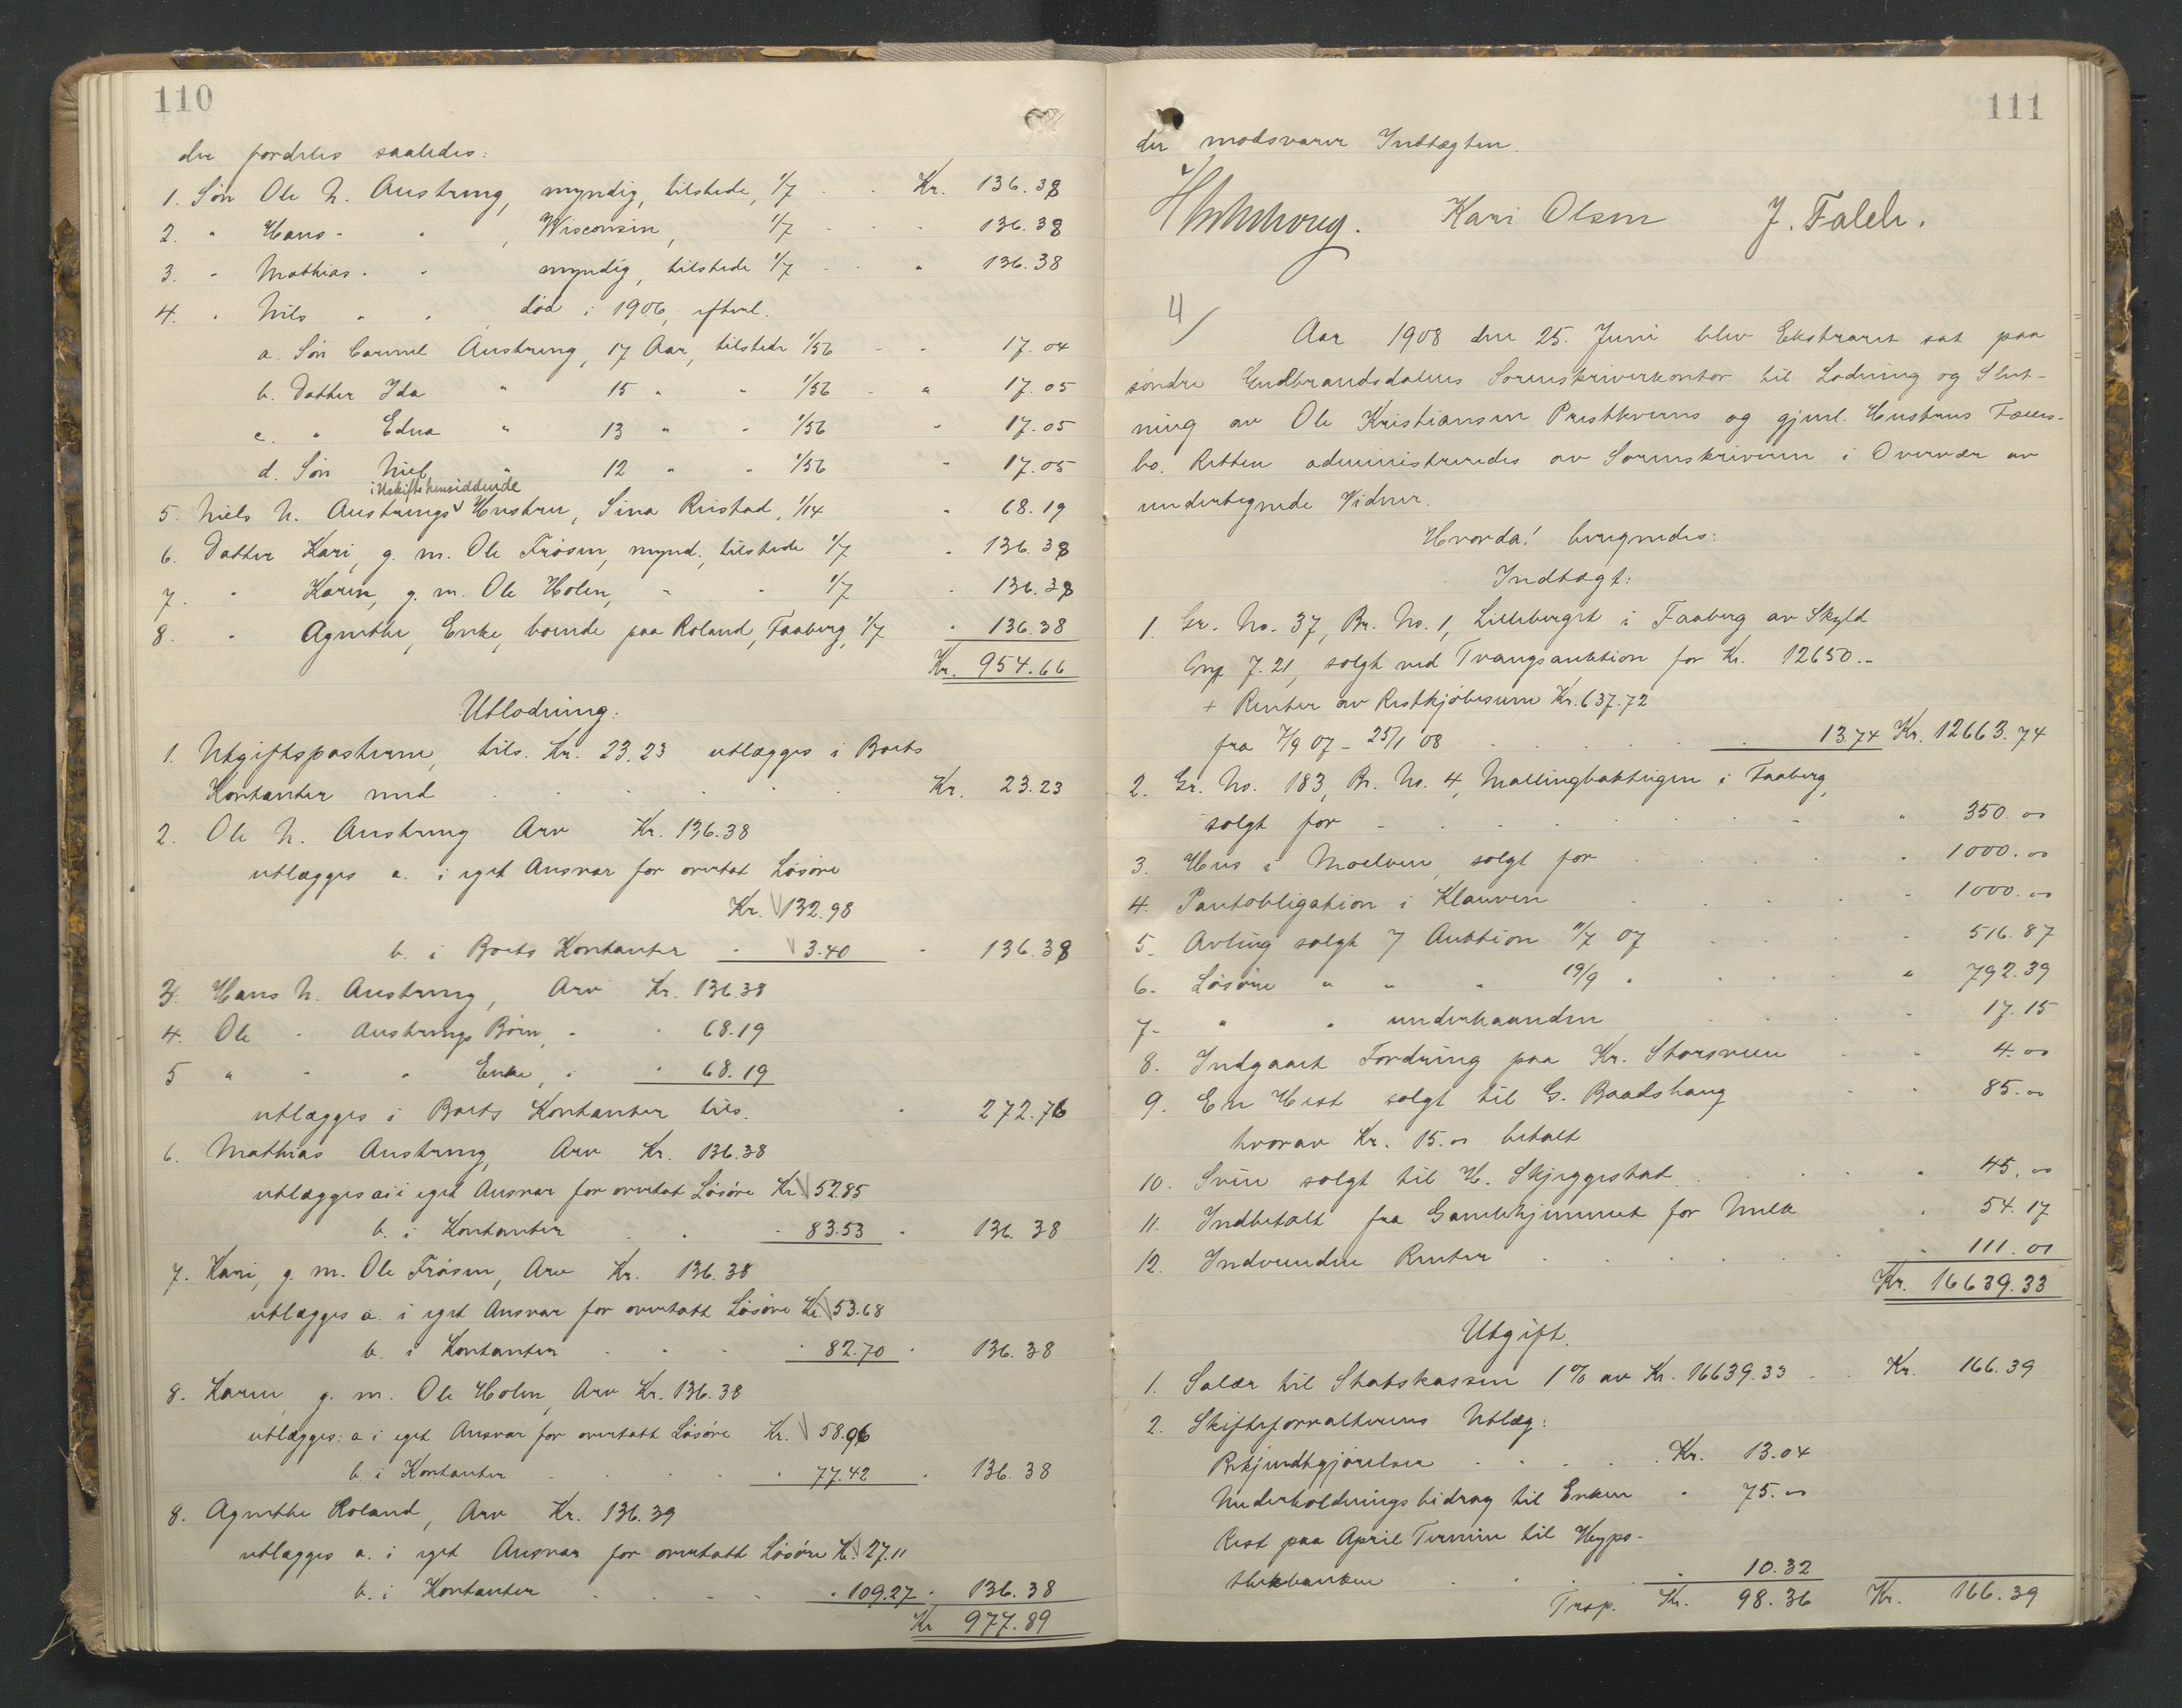 110
der fordeles saaledes:
1. Søn Ole N. Austreng, myndig, tilstede, 1/7 . . Kr. 136.38
2. " Hans " " , Wisconsin, 1/7 . . . 136.38
3. " Mathias " " myndig, tilstede 1/7 . . " 136.38
4. " Nils " " , død i 1906, efterl.
a. Søn Carmel Austreng, 17 Aar, tilstede 1/56 - - 17.04
b. Datter Ida " 15 " " 1/56 - " 17.05
c. " Edna " 13 " " 1/56 " 17.05
d. Søn Niel " 12 " " 1/56 " 17.05
i Uskifte hensiddende
5. Niels N. Austrengs Hustru, Sina Riistad, 1/14 " 68.19
6. Datter Kari, g. m. Ole Frøsen, mynd., tilstede 1/7 " 136.38
7. " Karen, g. m. Ole Holen, " " 1/7 " 136.38
8. " Agnethe, Enke, boende paa Roland, Faaberg, 1/7 " 136.38
Kr. 954.66
Utlodning:
1. Utgiftsposterne, tils. Kr. 23.23 utlægges i Boets
Kontanter med . . . . . . Kr. 23.23
2. Ole N. Austreng Arv Kr. 136.38
utlægges a. i eget Ansvar for overtat Løsøre
Kr. 132.98
b. i Boets Kontanter " 3.40 " 136.38
3. Hans N. Austreng, Arv Kr. 136.38
4. Ole " Austrengs Børn, " " 68.19
5 " " " Enke, " " 68.19
utlægges i Boets Kontanter tils. " 272.76
6. Mathias Austreng, Arv Kr. 136.38
utlægges a: i eget Ansvar for overtat Løsøre Kr. 52.85
b. i Kontanter . . " 83.53 " 136.38
7. Kari, g. m. Ole Frøsen, Arv Kr. 136.38
utlægges a. i eget Ansvar for overtatt Løsøre Kr. 53.68
b. i Kontanter . . . " 82.70 " 136.38
8. Karen, g. m. Ole Holen, Arv Kr. 136.38
utlægges: a i eget Ansvar for overtatt Løsøre Kr. 58.96
b. i Kontanter . . . . " 77.42 " 136.38
8. Agnethe Roland, Arv Kr. 136.39
utlægges a. i eget Ansvar for overtatt Løsøre Kr. 27.11
b. i Kontanter . . . . " 109.27 " 136.38
Kr 977.89
111
der modsvarer Indtægten.
Kari Olsen J. Falch.
4/
Aar 1908 den 25. Juni blev Ekstraret sat paa
søndre Gudbrandsdalens Sorenskriverkontor til Lodning og Slut-
ning av Ole Kristiansen Prestkverns og gjenl. Hustrus Fælles-
bo. Retten administreredes av Sorenskriveren i Overvær av
undertegnede Vidner.
Hvorda! beregnedes:
Indtægt:
1. Gr. No. 37, Br. No. 1, Lilleberget i Faaberg, av Skyld
7.21, solgt ved Tvangsauktion for Kr. 12650.-
+ Renter av Restkjøbesum Kr. 637.72
fra 7/9 07 - 25/1 08 . . . . . 13.74 Kr. 12663.74
2. Gr. No. 183, Br. No. 4, Mallingbakhagen i Faaberg,
solgt for - . . . . . - " 350.00
3. Hus i Moelven, solgt for . . . . . " 1000.00
4. Pantobligation i Klauven . . . . " 1000.00
5. Avling solgt 7 Auktion 11/7 07 . . . " 516.87
6. Løsøre " " " 19/9 " . . " 792.39
7. " " underhaanden . . . " 17.15
8. Indgaaet Fordring paa Kr. Storsveen . . 4.00
9. En Hest solgt til G. Baadshaug . . 85.00
hvorav Kr. 15.00 betalt
10. Svin solgt til H. Skjeggestad . . . " 45.00
11. Indbetalt fra Gamlehjemmet for Melk . " 54.17
12. Indvundne Renter . . . . . " 111.01
Kr. 16639.33
Utgift.
1. Salær til Statskassen 1% av Kr. 16639.33 . . Kr. 166.39
2. Skifteforvalterens Utlæg:
Bekjendtgjørelser . . . . Kr. 13.04
Underholdningsbidrag til Enken " 75.00
Rest paa April Termin til Hypo-
thekbanken . . . . " 10.32
Trsp. Kr. 98.36 Kr. 166.39